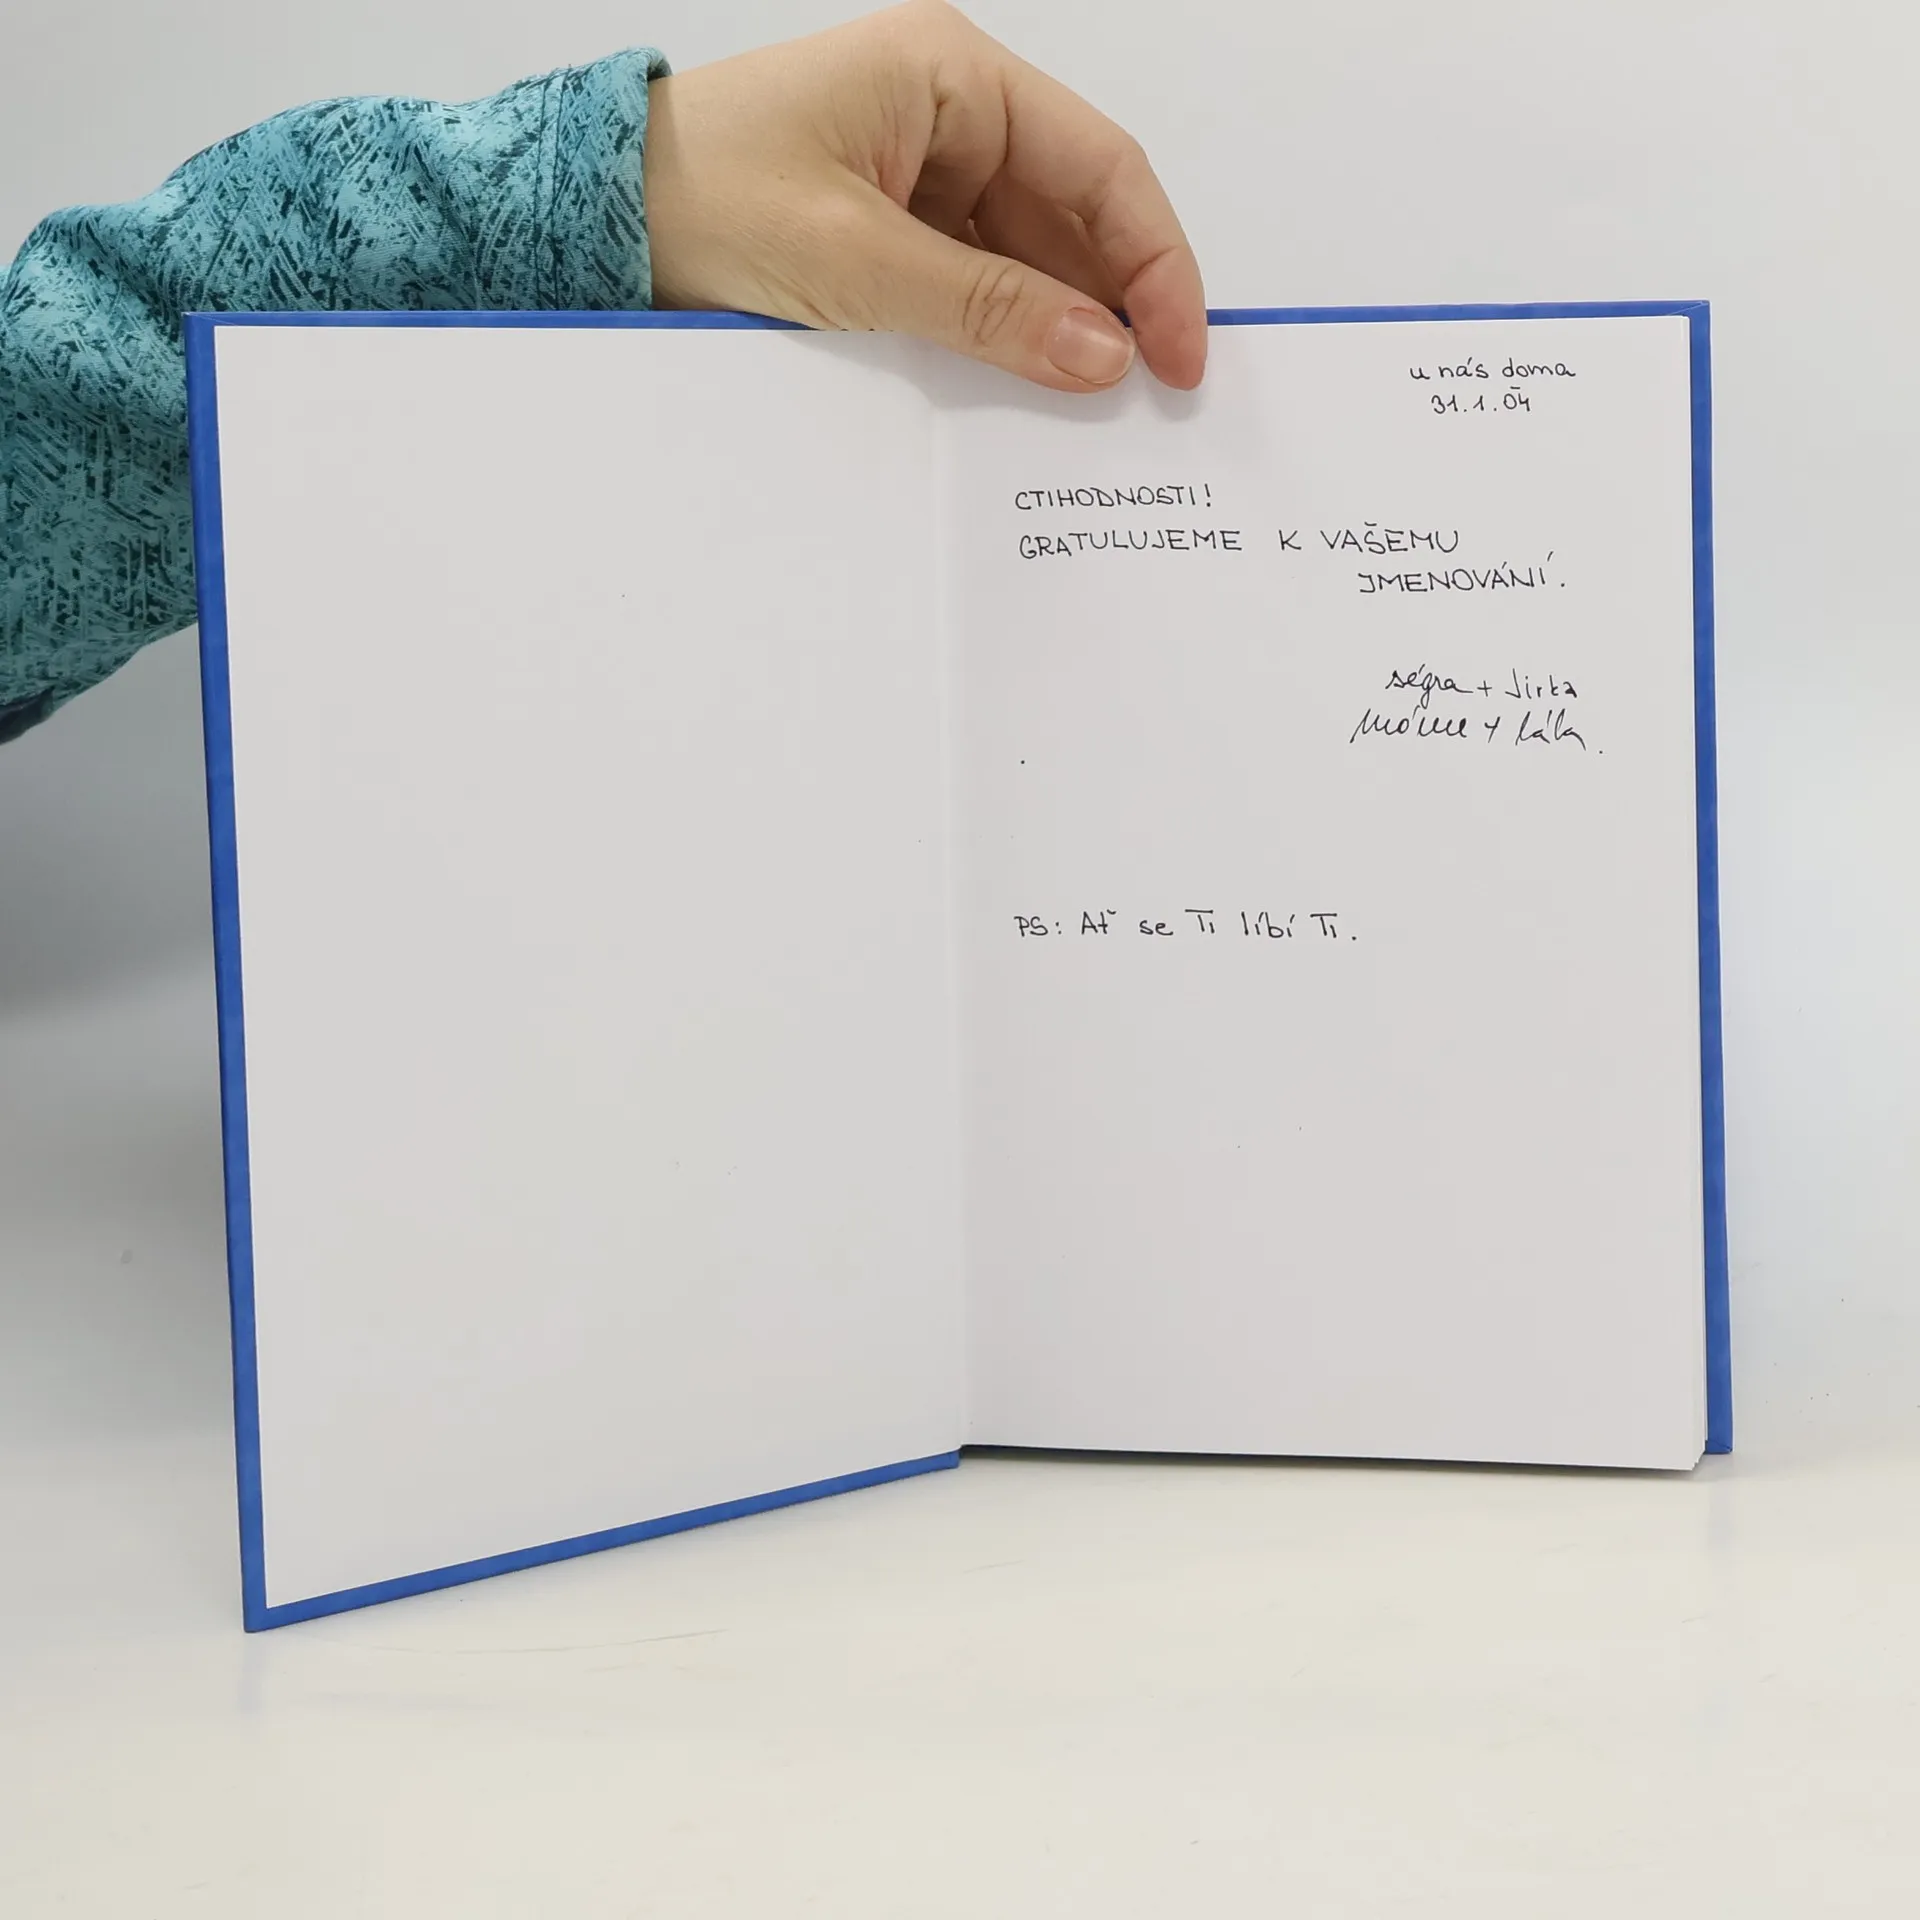 u nás doma
31.1.04
CTIHODNOSTI!
GRATULUJEME K VAŠEMU
JMENOVÁNÍ.
ségra + Jirka
+
PS: Ať se Ti líbí Ti.